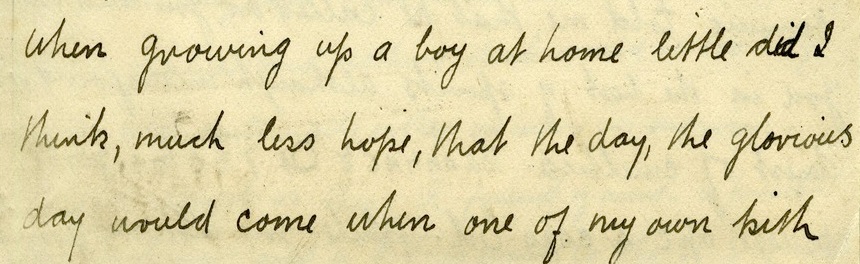 when growing up a boy at home little did I
think, much less hope, that the day, the glorious
day would come when one of my own kith